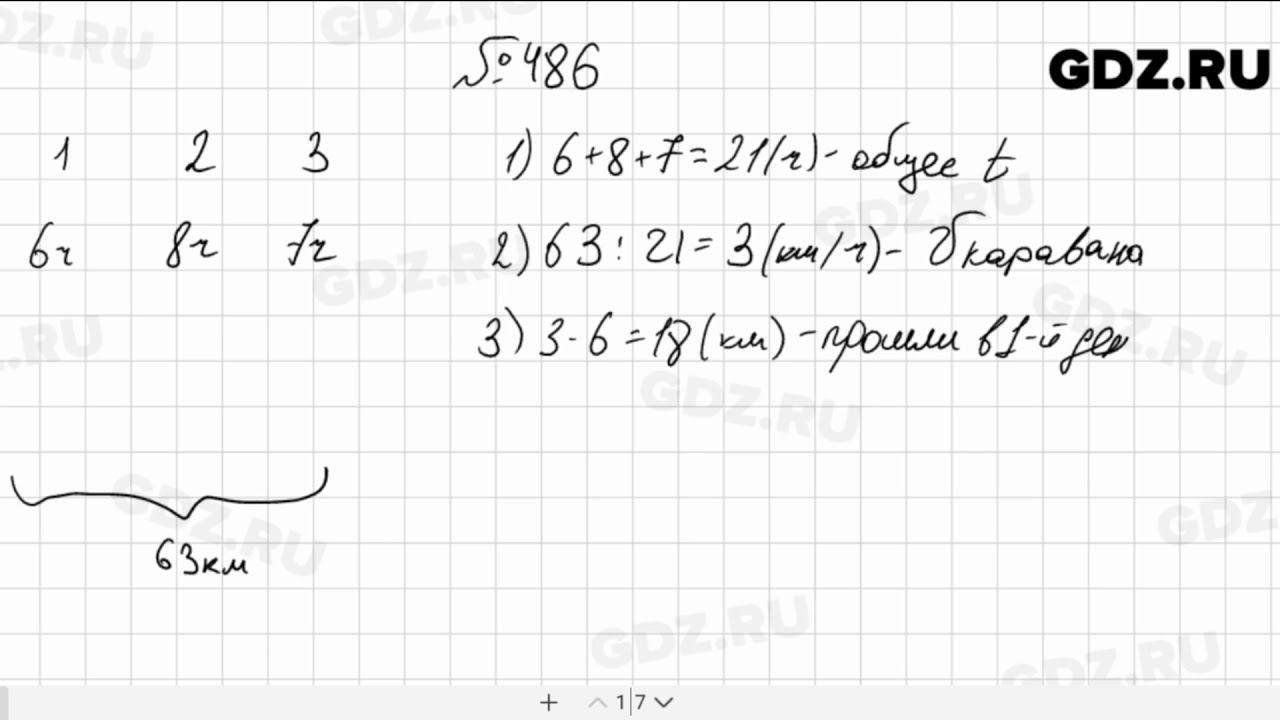 №486
GDZ.RU
1 2 3
6ч 8ч 7ч
1) 6+8+7=21(ч) - общее t
2) 63 : 21 = 3 (км/ч) - v каравана
3) 3 · 6 = 18 (км) - прошли в 1-й день
63 км
+ 1|7